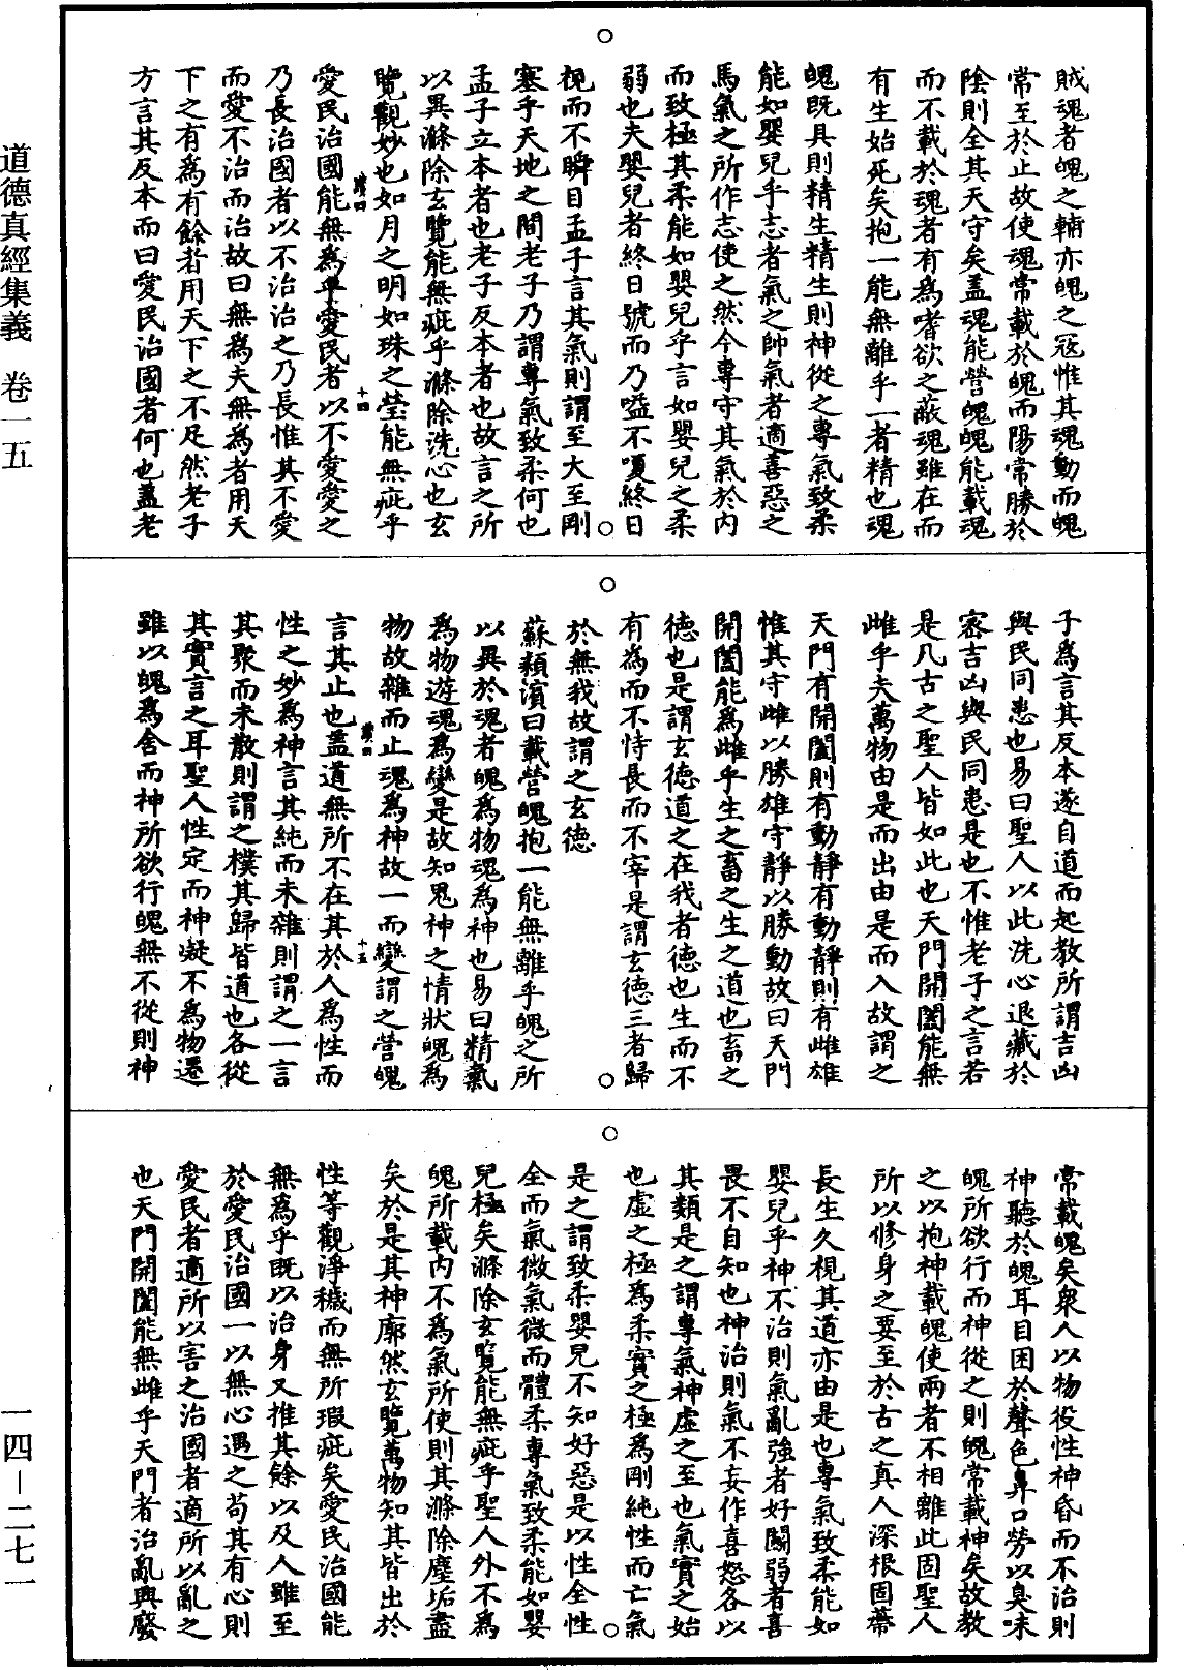 道德真經集義　卷一五
一四—二七一
賊魂者魄之輔亦魄之寇惟其魂動而魄
常至於止故使魂常載於魄而陽常勝於
陰則全其天守矣盖魂能營魄魄能載魂
而不載於魂者有為嗜欲之蔽魂雖在而
有生始死矣抱一能無離乎一者精也魂
魄既具則精生精生則神從之專氣致柔
能如嬰兒乎志者氣之帥氣者適喜惡之
馬氣之所作志使之然今專守其氣於内
而致極其柔能如嬰兒乎言如嬰兒之柔
弱也夫嬰兒者終日號而乃嗌不嗄終日
視而不瞬目孟子言其氣則謂至大至剛
塞乎天地之間老子乃謂專氣致柔何也
孟子立本者也老子反本者也故言之所
以異滌除玄覽能無疵乎滌除洗心也玄
覽觀妙也如月之明如珠之瑩能無疵乎
愛民治國能無為乎愛民者以不愛愛之
乃長治國者以不治治之乃長惟其不愛
而愛不治而治故曰無為夫無為者用天
下之有為有餘者用天下之不足然老子
方言其反本而曰愛民治國者何也盖老
子為言其反本遂自道而起教所謂吉凶
與民同患也易曰聖人以此洗心退藏於
密吉凶與民同患是也不惟老子之言若
是凡古之聖人皆如此也天門開闔能無
雌乎夫萬物由是而出由是而入故謂之
天門有開闔則有動靜有動靜則有雌雄
惟其守雌以勝雄守靜以勝動故曰天門
開闔能為雌乎生之畜之生之道也畜之
德也是謂玄德道之在我者德也生而不
有為而不恃長而不宰是謂玄德三者歸
於無我故謂之玄德
蘇穎濱曰載營魄抱一能無離乎魄之所
以異於魂者魄為物魂為神也易曰精氣
為物遊魂為變是故知鬼神之情狀魄為
物故雜而止魂為神故一而變謂之營魄
言其止也盖道無所不在其於人為性而
性之妙為神言其純而未雜則謂之一言
其聚而未散則謂之樸其歸皆道也各從
其實言之耳聖人性定而神凝不為物遷
雖以魄為舍而神所欲行魄無不從則神
常載魄矣衆人以物役性神昏而不治則
神聽於魄耳目困於聲色鼻口勞以臭味
魄所欲行而神從之則魄常載神矣故教
之以抱神載魄使兩者不相離此固聖人
所以修身之要至於古之真人深根固蔕
長生久視其道亦由是也專氣致柔能如
嬰兒乎神不治則氣亂強者好鬭弱者喜
畏不自知也神治則氣不妄作喜怒各以
其類是之謂專氣神虛之至也氣實之始
也虛之極為柔實之極為剛純性而亡氣
是之謂致柔嬰兒不知好惡是以性全性
全而氣微氣微而體柔專氣致柔能如嬰
兒極矣滌除玄覽能無疵乎聖人外不為
魄所載内不為氣所使則其滌除塵垢盡
矣於是其神廓然玄覽萬物知其皆出於
性等觀淨穢而無所瑕疵矣愛民治國能
無為乎既以治身又推其餘以及人雖至
於愛民治國一以無心遇之苟其有心則
愛民者適所以害之治國者適所以亂之
也天門開闔能無雌乎天門者治亂興廢